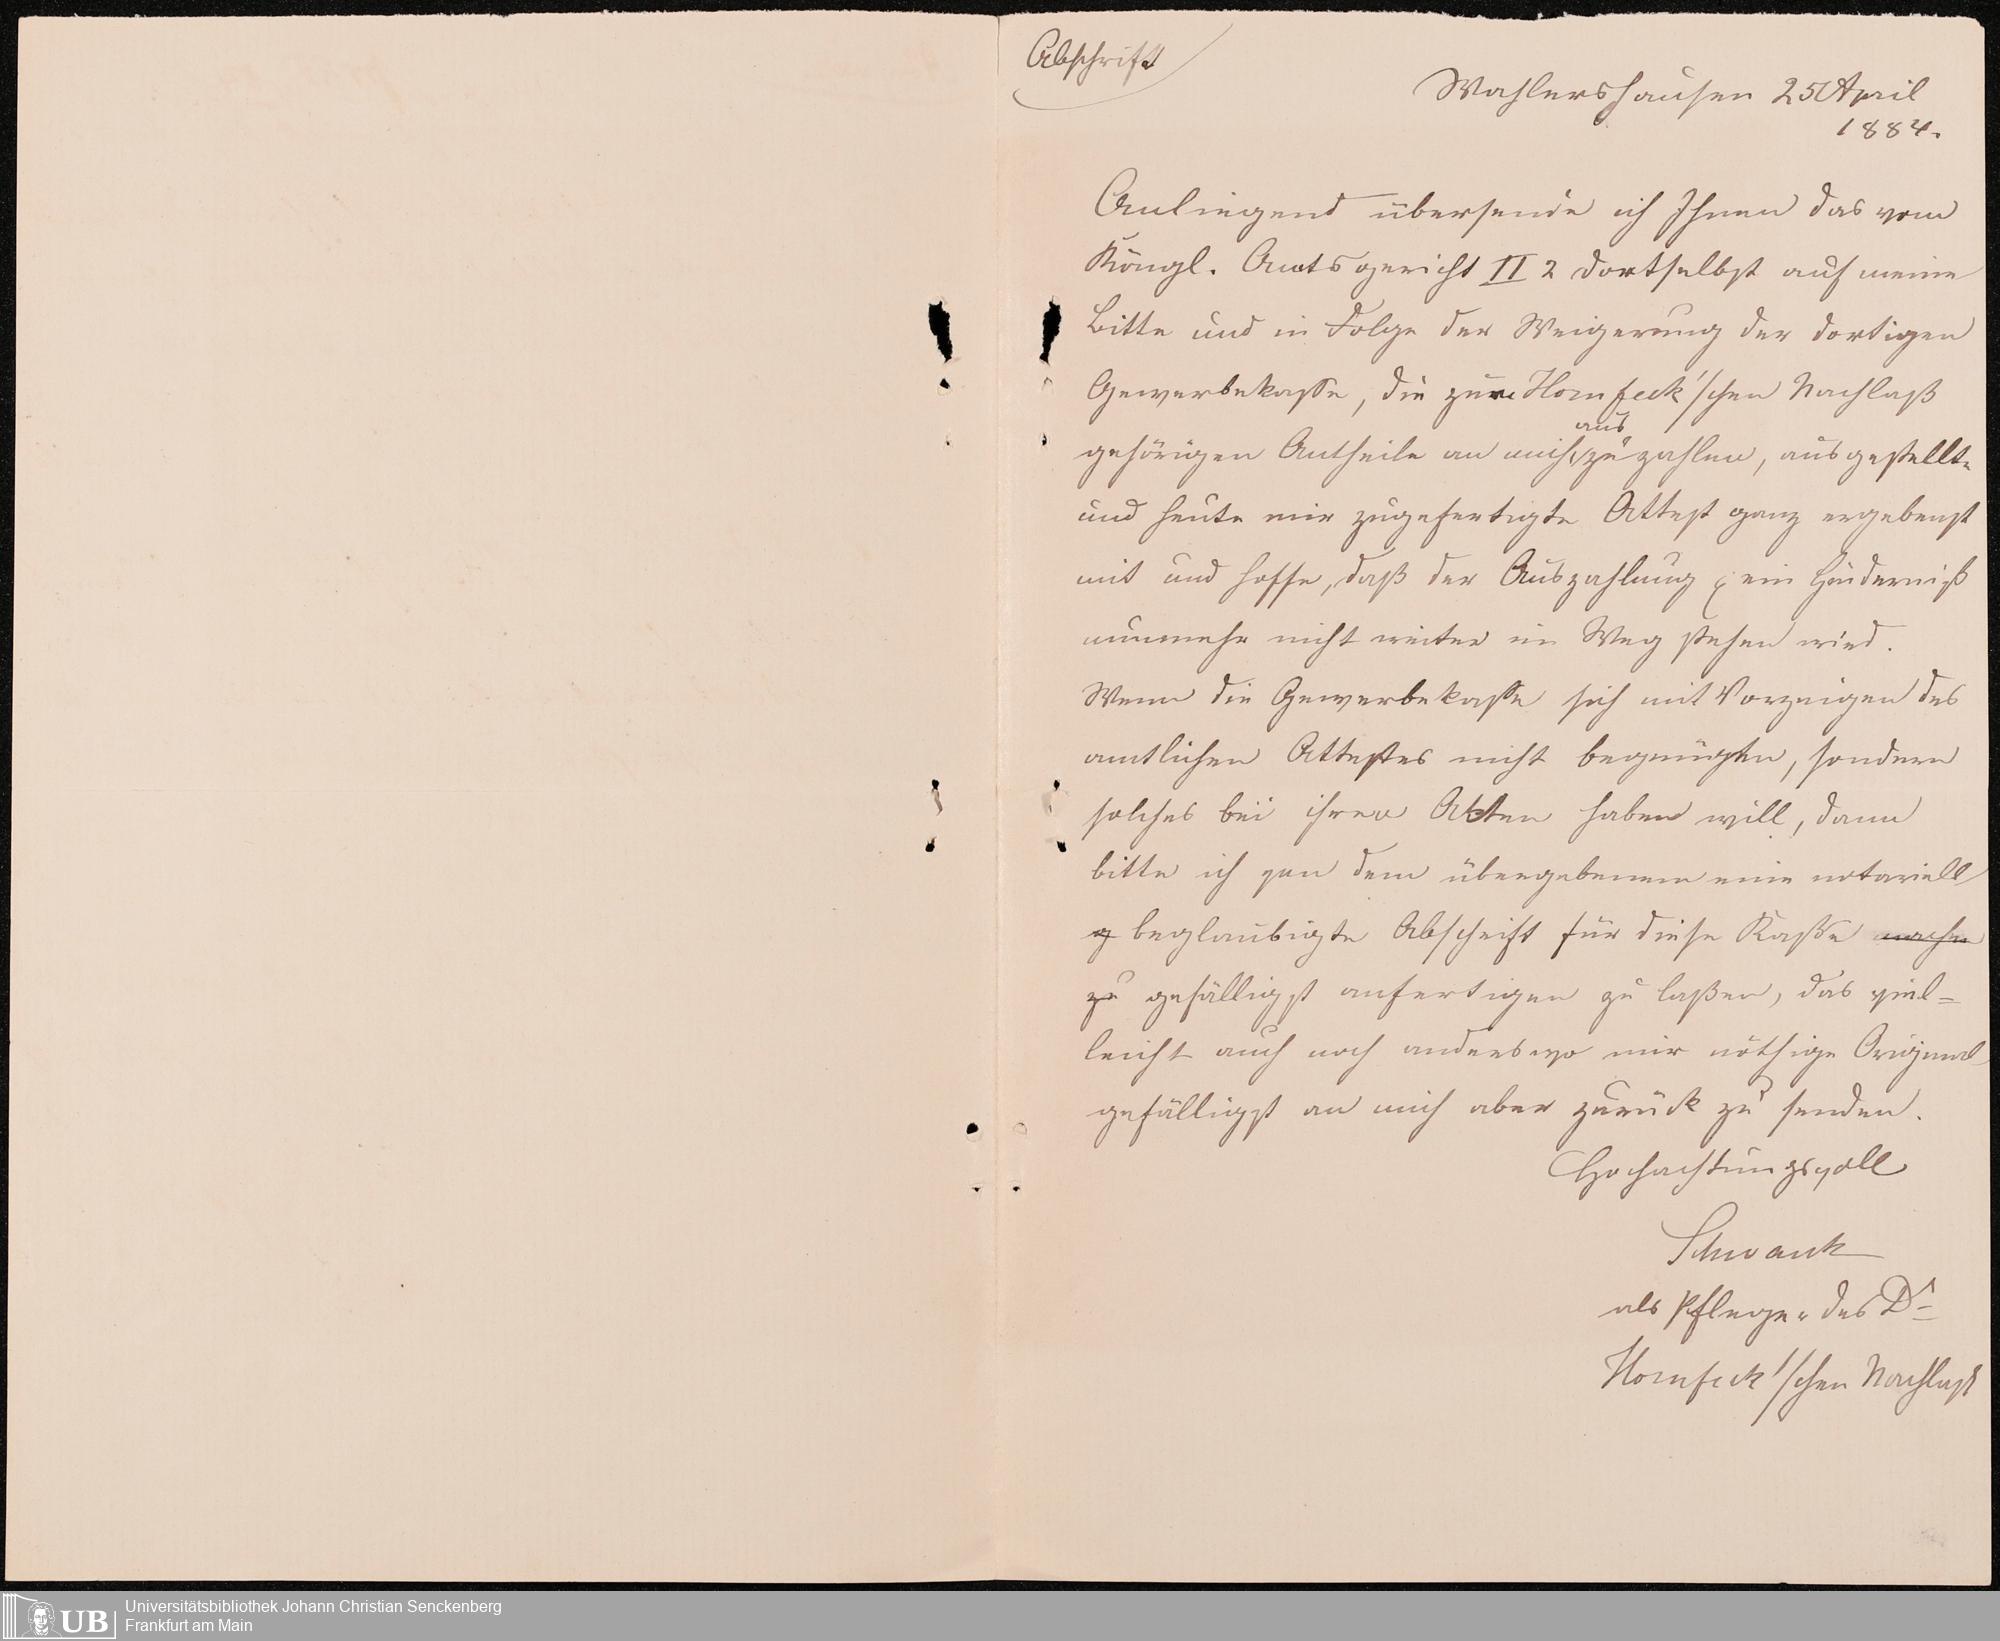 Abschrift
Wahlershausen 25 April
1884.
Anliegend übersende ich Ihnen das vom
Königl. Amtsgericht II 2 dortselbst auf meine
Bitte und in Folge der Weigerung der dortigen
Gewerbekasse, die zur Hornfeck'schen Nachlaß
aus
gehörigen Antheile an mich zu zahlen, ausgestellte
und heute mir zugefertigte Attest ganz ergebenst
mit und hoffe, daß der Auszahlung ein Hinderniß
nunmehr nicht weiter im Weg stehen wird.
Wenn die Gewerbekasse sich mit Vorzeigen des
amtlichen Attestes nicht begnügen, sondern
solches bei ihren Akten haben will, dann
bitte ich von dem übergebenen eine notariell
g beglaubigte Abschrift für diese Kasse machen
zu gefälligst anfertigen zu laßen, das viel-
leicht auch noch anderswo mir nöthige Original
gefälligst an mich aber zurück zu senden.
Hochachtungsvoll
Schwank
als Pfleger des Dr
Hornfeck'schen Nachlaß
Universitätsbibliothek Johann Christian Senckenberg
Frankfurt am Main
UB